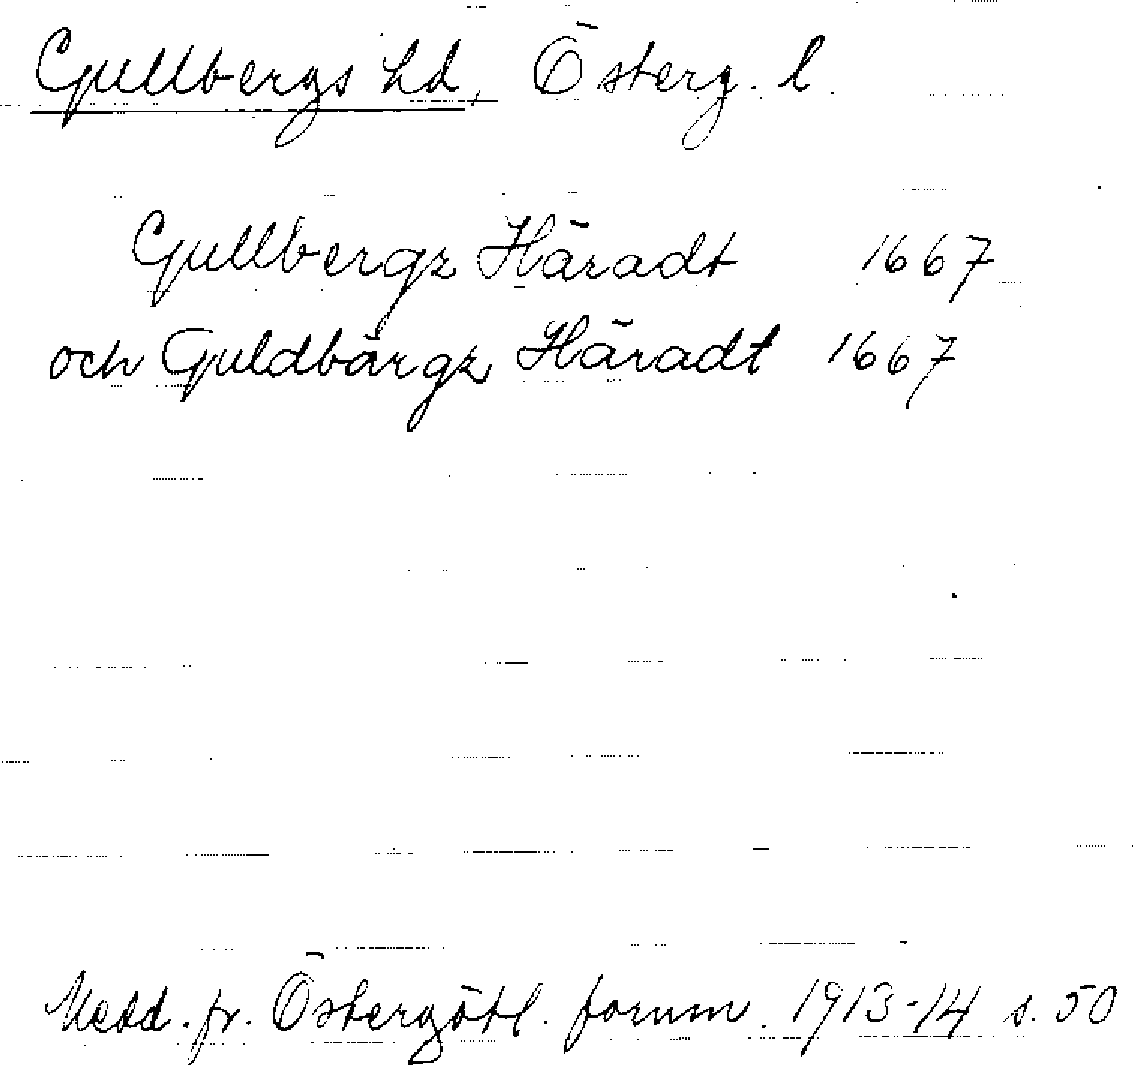 Gullbergs hd, Österg. l.
Gullbergz Häradt 1667
och Guldbärgz Häradt 1667
Medd. fr. Östergötl. fornm. 1913-14 s. 50